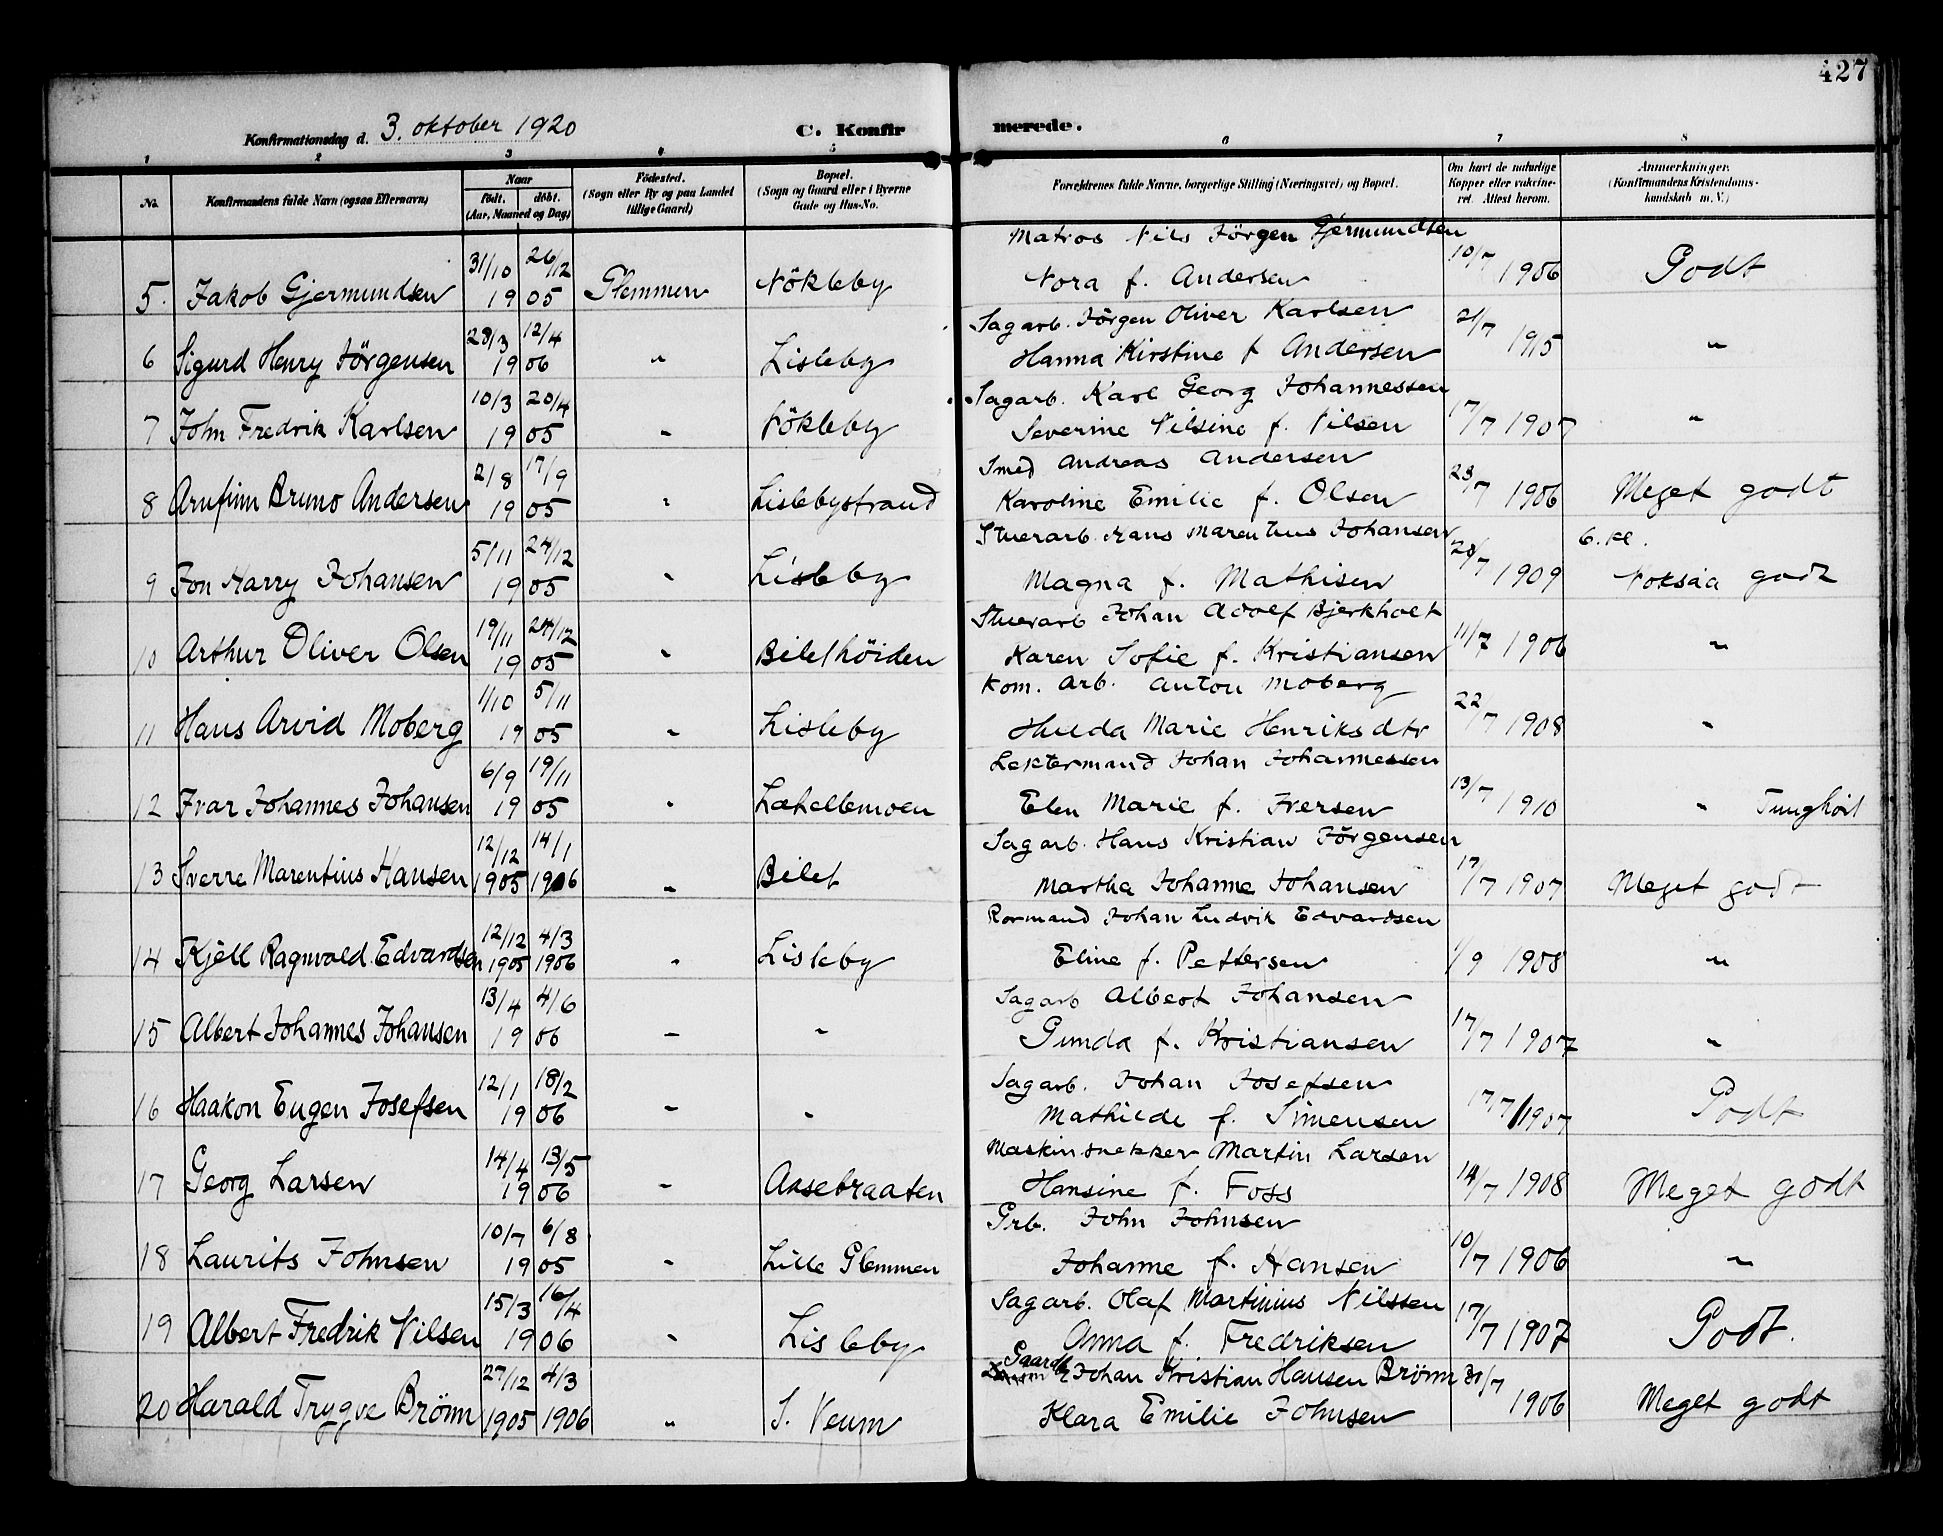 427
Konfirmationsdag d. 3. oktober 1920
C. Konfirmerede.
1 2 3 4 5 6 7 8
No. Konfirmandens fulde Navn (ogsaa Efternavn) Naar født. døbt. (Aar, Maaned og Dag) Fødested. (Sogn eller By og paa Landet tillige Gaard) Bopæl. (Sogn og Gaard eller i Byerne Gade og Hus-No. Forældrenes fulde Navne, borgerlige Stilling (Næringsvei) og Bopæl. Om havt de naturlige Kopper eller vaccineret. Attest herom. Anmerkninger. (Konfirmandens Kristendomskundskab m. V.)
31/10 26/12 Matros Nils Jörgen Gjermundsen 10/7
5. Jakob Gjermundsen 1905 Glemmen Nökleby Nora f. Andersen 1906 Godt
28/3 12/4 Sagarb. Jörgen Oliver Karlsen 21/7
6 Sigurd Henry Jörgensen 1906 " Lisleby Hanna Kirstine f Andersen 1915 "
10/3 20/4 Sagarb. Karl Georg Johannessen
7 John Fredrik Karlsen 1905 " Nökleby Severine Nilsine f. Nilsen 17/7 1907 "
2/8 17/9 Smed Andreas Andersen
8 Arnfinn Bruno Andersen 1905 " Lislebystrand Karoline Emilie f. Olsen 23/7 1906 Meget godt
5/11 24/12 Stuerarb. Hans Marentius Johansen 6. kl.
9 Jon Harry Johansen 1905 " Lisleby Magna f. Mathisen 28/7 1909 Noksaa godt
19/11 24/12 Stuerarb Johan Adolf Bjerkholt
10 Arthur Oliver Olsen 1905 " Bilethöiden Karen Sofie f. Kristiansen 11/7 1906 "
1/10 5/11 Kom. Arb. Anton Moberg
11 Hans Arvid Moberg 1905 " Lisleby Hulda Marie Henriksdtr 22/7 1908 "
6/9 19/11 Lektermand Johan Johannessen
12 Ivar Johannes Johansen 1905 " Lakellemoen Elen Marie f. Iversen 13/7 1910 " Tunghört
12/12 14/1 Sagarb. Hans Kristian Jörgensen
13 Sverre Marentius Hansen 1905 1906 " Bilet Martha Johanne Johansen 17/7 1907 Meget godt
12/12 4/3 Rormand Johan Ludvik Edvardsen
14 Kjell Ragnvald Edvardsen 1905 1906 " Lisleby Eline f. Pettersen 1/9 1908 "
13/4 4/6 Sagarb Albert Johansen
15 Albert Johannes Johansen 1906 " " Gunda f. Kristiansen 17/7 1907 "
12/1 18/2 Sagarb. Johan Josefsen
16 Haakon Eugen Josefsen 1906 " " Mathilde f. Simensen 17/7 1907 Godt
14/4 13/5 Maskinsnekker Martin Larsen
17 Georg Larsen 1906 " Aasebraaten Hansine f. Foss 14/7 1908 Meget godt
10/7 6/8 Grb. John Johnsen
18 Laurits Johnsen 1905 " Lille Glemmen Johanne f. Hansen 10/7 1906 "
15/3 16/4 Sagarb. Olaf Martinius Nilssen
19 Albert Fredrik Nilsen 1906 " Lisleby Anna f. Fredriksen 17/7 1907 Godt.
27/12 4/3 Gaardb Johan Kristian Hansen Brönn 31/7
20 Harald Trygve Brönn 1905 1906 " S. Veum Klara Emilie Johnsen 1906 Meget godt